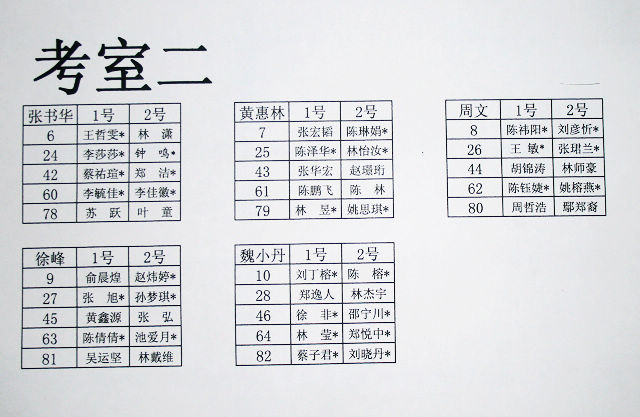 考室二
张书华 1号 2号
6 王哲雯* 林 潇
24 李莎莎* 钟 鸣*
42 蔡祐瑄* 郑 洁*
60 李毓佳* 李佳徽*
78 苏 跃 叶 童
黄惠林 1号 2号
7 张宏韬 陈琳娟*
25 陈泽华* 林怡汝*
43 张华宏 赵璟珩
61 陈鹏飞 陈 林
79 林 昱* 姚思琪*
周文 1号 2号
8 陈祎阳* 刘彦忻*
26 王 敏* 张珺兰*
44 胡锦涛 林师豪
62 陈钰婕* 姚榕燕*
80 周哲浩 鄢郑裔
徐峰 1号 2号
9 俞晨煌 赵炜婷*
27 张 旭* 孙梦琪*
45 黄鑫源 张 弘
63 陈倩倩* 池爱月*
81 吴运坚 林戴维
魏小丹 1号 2号
10 刘丁榕* 陈 榕*
28 郑逸人 林杰宇
46 徐 非* 邵宁川*
64 林 莹* 郑悦中*
82 蔡子君* 刘晓丹*